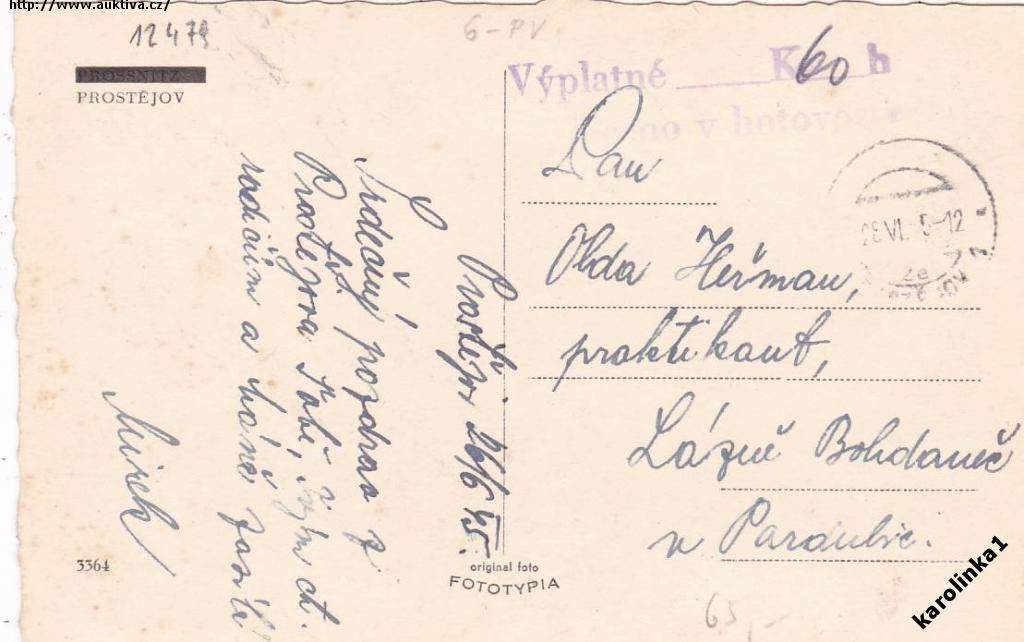 http://www.auktiva.cz/
12479
6-PV
PROSSNITZ
PROSTĚJOV
Výplatné K 60 h
v hotovo
28 VI. 5-12
Pan
Olda Heřman,
praktikant,
Lázně Bohdaneč
u Pardubic.
Prostějov 26/6 45.
Srdečný pozdrav z
Prostějova Tobě, Tvým ct.
rodičům a
Mirek
3364
original foto
FOTOTYPIA
65,-
karolinka1